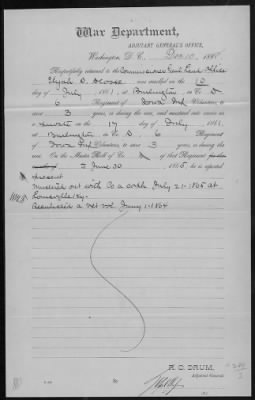 War Department,
ADJUTANT GENERAL'S OFFICE,
Washington, D. C., Dec 10, 188
Respectfully returned to the Commissioner Genl Land Office
Elijah was enrolled on the 10
day of July, 1861, at Burlington, in Co. D
6 Regiment of Iowa Inf Volunteers, to
serve 3 years, or during the war, and mustered into service
as 17 day of July, 1861,
at Burlington, in Co. D, 6 Regiment
of Iowa Inf Volunteers, to serve 3 years, or during the
war. On the Muster Roll of Co. A of that Regiment
to June 30 1865, he is reported
present
Mustered out with Co a July 21-1865 at
Louisville Ky.
Reenlisted a vet vol Jany 1-1864
R. C. DRUM,
Adjutant General.